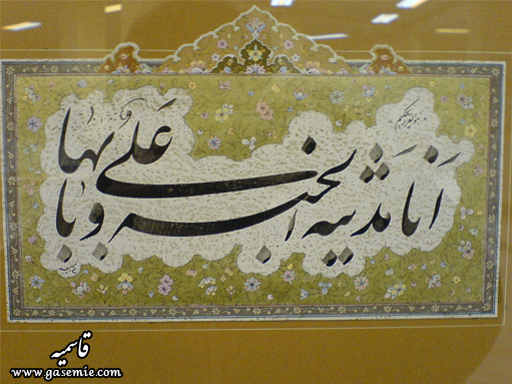 اَنَا مَدینه الجنه و عَلیُ بابها
قاسمیه
www.gasemie.com